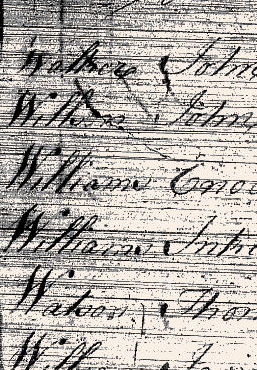 Wallace, John
Willson, John,
Williams Enoc
Williams Intre
Watson, Thom
Will